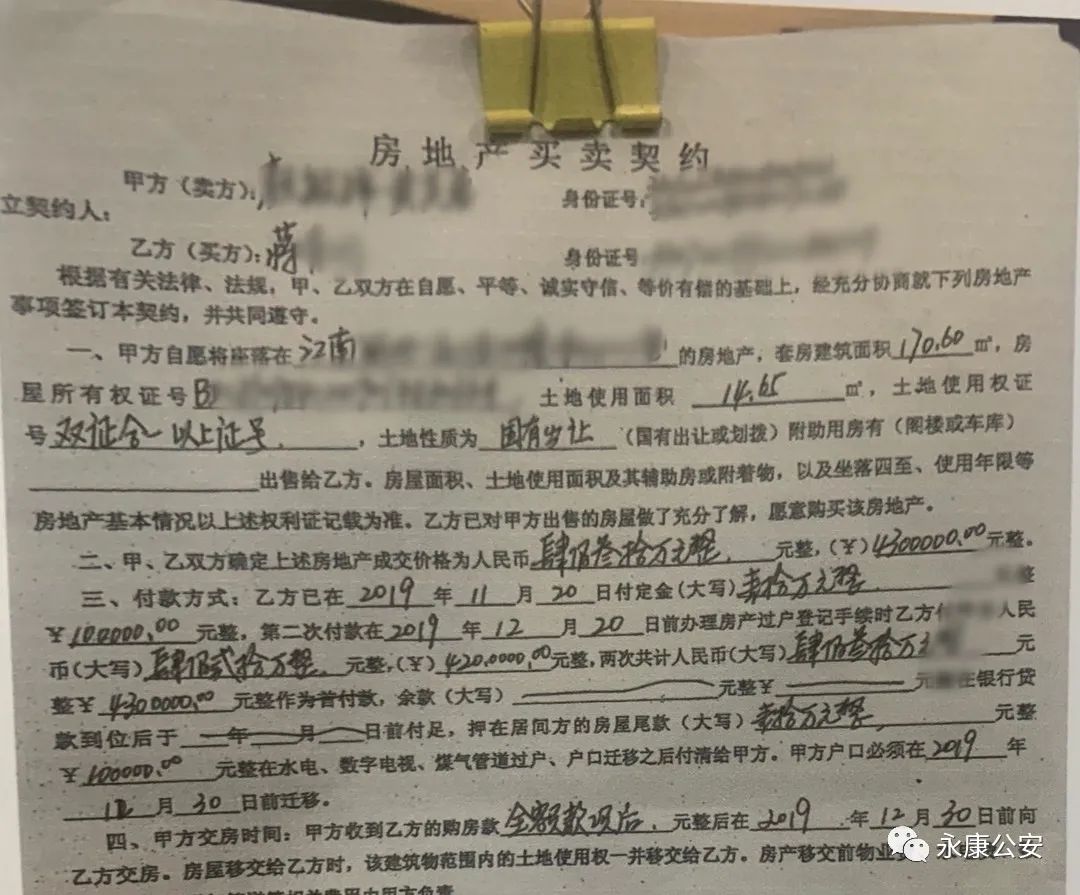 房地产买卖契约
甲方（卖方）： 身份证号：
立契约人：
乙方（买方）：蒋 身份证号
根据有关法律、法规，甲、乙双方在自愿、平等、诚实守信、等价有偿的基础上，经充分协商就下列房地产
事项签订本契约，并共同遵守。
一、甲方自愿将座落在 江南 的房地产，套房建筑面积 170.60 ㎡，房
屋所有权证号 B 土地使用面积 14.65 ㎡，土地使用权证
号 双证合一 以上证号 ，土地性质为 国有出让 （国有出让或划拨）附助用房有（阁楼或车库）
出售给乙方。房屋面积、土地使用面积及其辅助房或附着物，以及坐落四至、使用年限等
房地产基本情况以上述权利证记载为准。乙方已对甲方出售的房屋做了充分了解，愿意购买该房地产。
二、甲、乙双方确定上述房地产成交价格为人民币 肆佰叁拾万元整 元整，（￥）4300000.00 元整。
三、付款方式：乙方已在 2019 年 11 月 20 日付定金（大写）壹拾万元整 整
￥100000.00 元整，第二次付款在 2019 年 12 月 20 日前办理房产过户登记手续时乙方付 人民
币（大写）肆佰贰拾万整 元整，（￥）4200000.00 元整，两次共计人民币（大写）肆佰叁拾万元 元
整￥4300000.00 元整作为首付款，余款（大写） 元整￥ 元 在银行贷
款到位后于 年 月 日前付足，押在居间方的房屋尾款（大写）壹拾万元整 元整
￥100000.00 元整在水电、数字电视、煤气管道过户、户口迁移之后付清给甲方。甲方户口必须在 2019 年
12 月 30 日前迁移。
四、甲方交房时间：甲方收到乙方的购房款 全额款项后 元整后在 2019 年 12 月 30 日前向
乙方交房。房屋移交给乙方时，该建筑物范围内的土地使用权一并移交给乙方。房产移交前物业
费用由甲方负责
永康公安